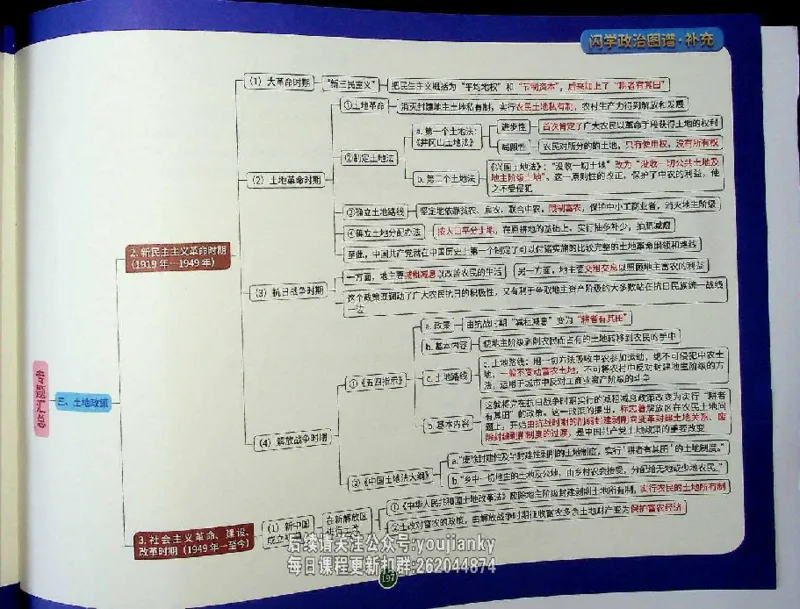 闪学政治图谱·补充
专题汇总
三、土地政策
2. 新民主主义革命时期
(1919年—1949年)
(1) 大革命时期
“新三民主义”
把民生主义概括为“平均地权”和“节制资本”，后来加上了“耕者有其田”
(2) 土地革命时期
①土地革命
消灭封建地主土地私有制，实行农民土地私有制，农村生产力得到解放和发展
②制定土地法
a. 第一个土地法:
《井冈山土地法》
进步性
首次肯定了广大农民以革命手段获得土地的权利
局限性
农民对所分的的土地，只有使用权，没有所有权
b. 第二个土地法
《兴国土地法》：“没收一切土地”改为“没收一切公共土地及
地主阶级土地”。这一原则性的改正，保护了中农的利益，使
之不受侵犯
③确立土地路线
坚定地依靠贫农、雇农，联合中农，限制富农，保护中小工商业者，消灭地主阶级
④确立土地分配办法
按人口平分土地，在原耕地的基础上，实行抽多补少，抽肥补瘦
至此，中国共产党就在中国历史上第一个制定了可以付诸实施的比较完整的土地革命纲领和路线
(3) 抗日战争时期
一方面，地主要减租减息以改善农民的生活
另一方面，地主要交租交息以照顾地主富农的利益
这个政策既调动了广大农民抗日的积极性，又有利于争取地主资产阶级的大多数站在抗日民族统一战线
一边
(4) 解放战争时期
①《五四指示》
a. 政策
由抗战时期“减租减息”变为“耕者有其田”
b. 基本内容
使地主阶级剥削农民而占有的土地转移到农民的手中
c. 土地路线
c. 土地路线：用一切方法吸收中农参加运动，绝不可侵犯中农土
地，一般不变动富农土地，不可将农村中反对封建地主阶级的方
法，适用于城市中反对工商业资产阶级的斗争
b. 基本内容
这就将党在抗日战争时期实行的减租减息政策改变为实行“耕者
有其田”的政策。这一政策的提出，标志着解放区在农民土地问
题上，开始由抗战时期的削弱封建剥削向变革封建土地关系、废
除封建剥削制度的过渡，是中国共产党土地政策的重要改变
②《中国土地法大纲》
a. “废除封建性及半封建性剥削的土地制度，实行‘耕者有其田’的土地制度。”
b. “乡中一切地主的土地及公地，由乡村农会接受，分配给无地或少地农民。”
3. 社会主义革命、建设、
改革时期 (1949年—至今)
(1) 新中国
成立
在新解放区
进行土改
①《中华人民共和国土地改革法》废除地主阶级封建剥削土地所有制，实行农民的土地所有制
②土改对富农的政策，由解放战争时期征收富农多余土地财产变为保护富农经济
后续请关注公众号:youjianky
每日课程更新扣群:262044874
197